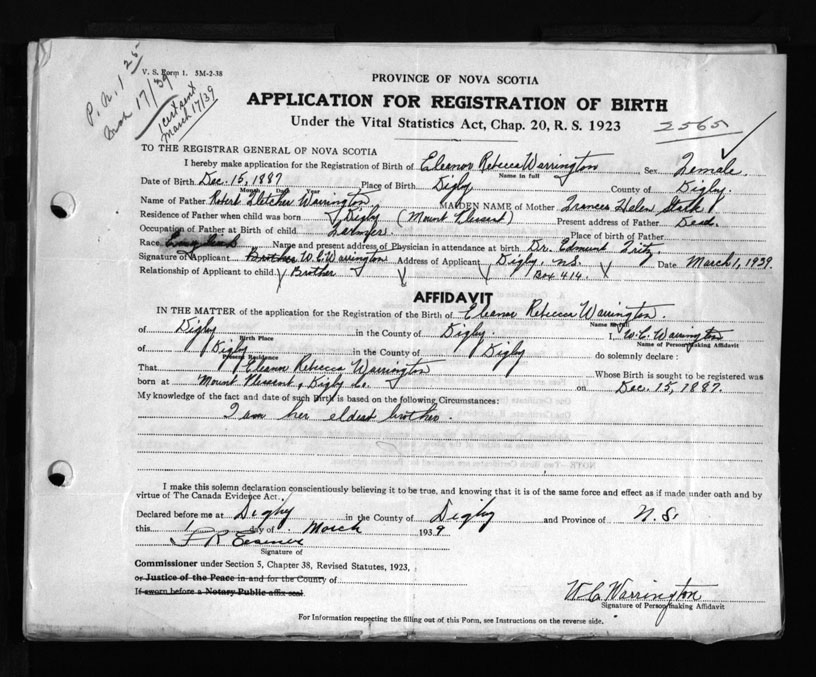 V. S. Form 1. 5M-2-38
P. N. 1 25
Mar 17/39
1 cert sent
March 17/39
PROVINCE OF NOVA SCOTIA
APPLICATION FOR REGISTRATION OF BIRTH
Under the Vital Statistics Act, Chap. 20, R. S. 1923
2565
TO THE REGISTRAR GENERAL OF NOVA SCOTIA
I hereby make application for the Registration of Birth of Eleanor Rebecca Warrington Sex Female
Name in full
Date of Birth Dec. 15, 1887 Place of Birth Digby County of Digby.
Month Date Year
Name of Father Robert Fletcher Warrington MAIDEN NAME of Mother Frances Helen Stark
Residence of Father when child was born Digby (Mount Plesent) Present address of Father Dead.
Occupation of Father at Birth of Child Farmer. Place of Birth of Father
Race English Name and present address of Physician in attendance at birth Dr. Edmund Fritz.
Signature of Applicant Brother W. C. Warrington Address of Applicant Digby, N.S. Date March 1, 1939.
Relationship of Applicant to child Brother Box 414.
AFFIDAVIT
IN THE MATTER of the application for the Registration of the Birth of Eleanor Rebecca Warrington.
Name in full
of Digby in the County of Digby. I, W. C. Warrington
Birth Place Name of Person making Affidavit
of Digby in the County of Digby do solemnly declare :
Present Residence
That Eleanor Rebecca Warrington Whose Birth is sought to be registered was
born at Mount Plesent, Digby Co. on Dec. 15, 1887.
My knowledge of the fact and date of such Birth is based on the following Circumstances:
I am her eldest brother.
I make this solemn declaration conscientiously believing it to be true, and knowing that it is of the same force and effect as if made under oath and by
virtue of The Canada Evidence Act.
Declared before me at Digby in the County of Digby and Province of N.S.
this 1 day of March 1939
Signature of
Commissioner under Section 5, Chapter 38, Revised Statutes, 1923,
or Justice of the Peace in and for the County of
If sworn before a Notary Public affix seal.
W. C. Warrington
Signature of Person making Affidavit
For Information respecting the filling out of this Form, see Instructions on the reverse side.